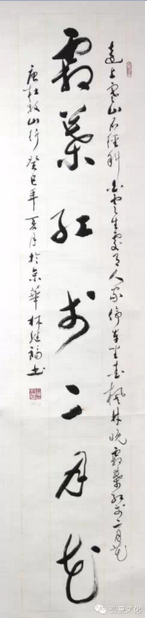 遠上寒山石徑斜白雲生處有人家停車坐愛楓林晚霜葉紅於二月花
霜葉紅於二月花
唐杜牧山行癸巳年夏月於京華林書
文化